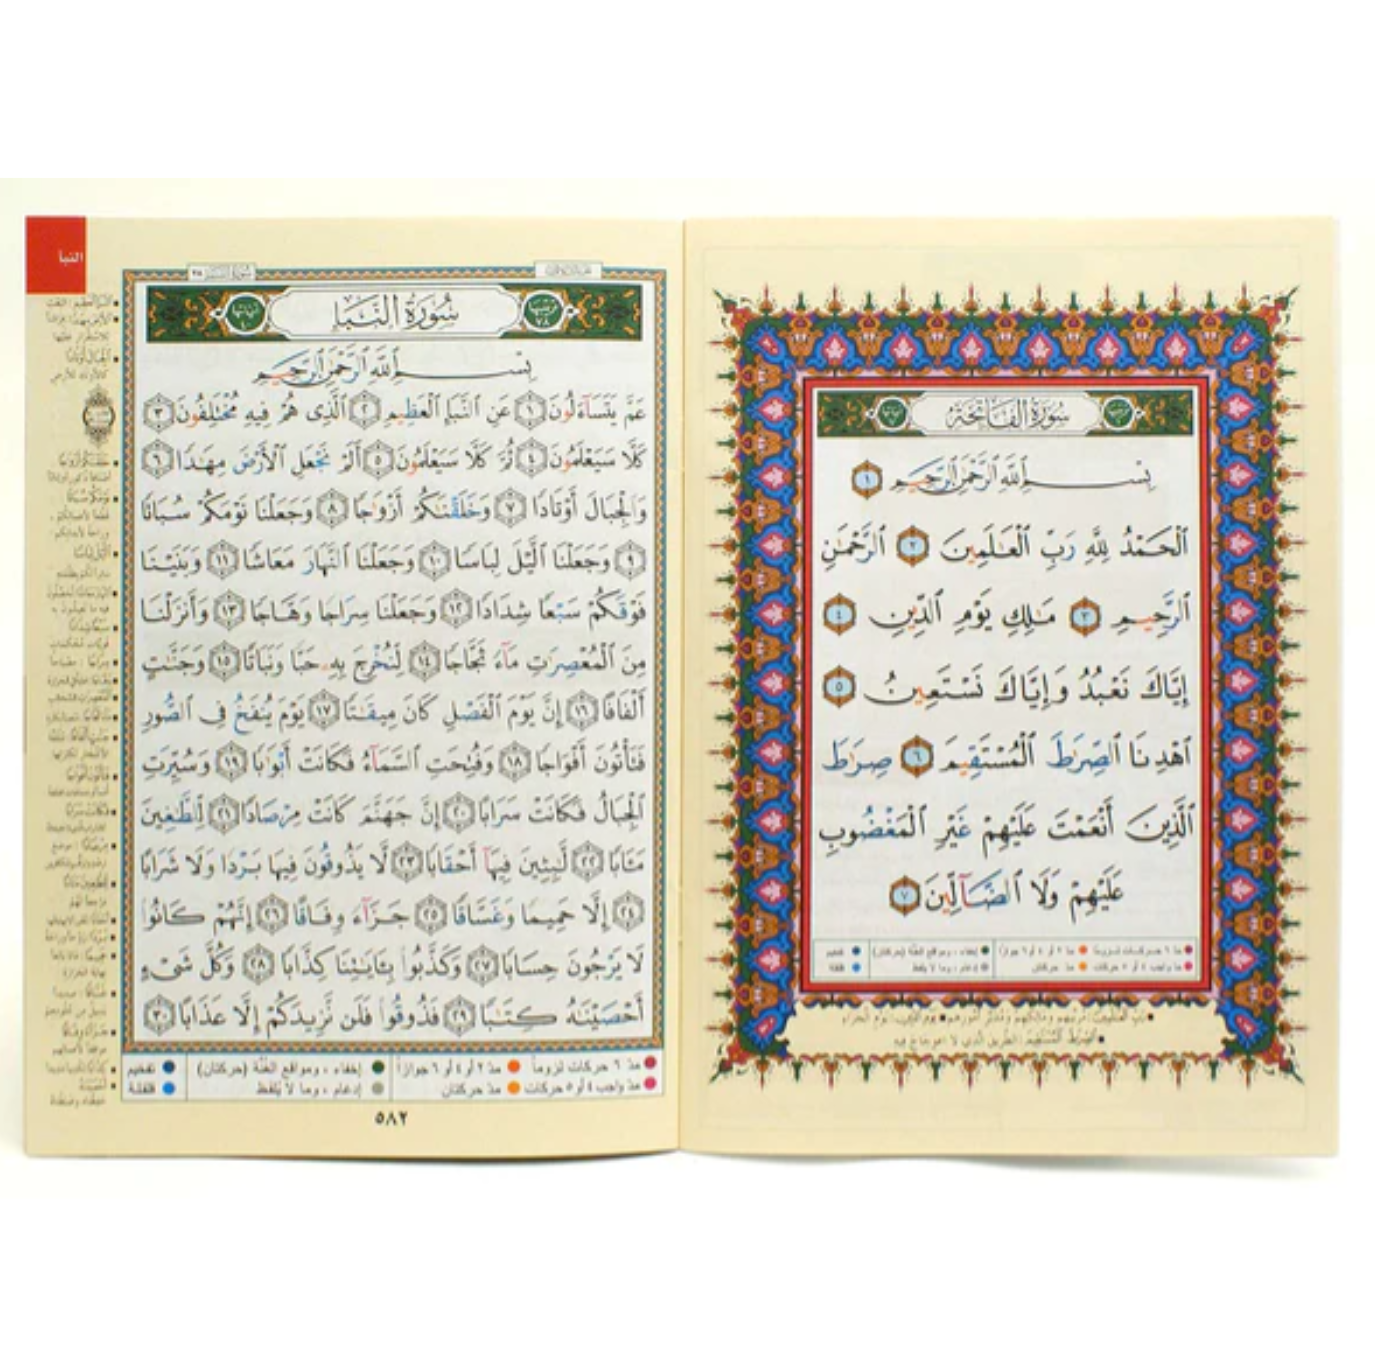 سُورَةُ الفَاتِحَةِ
بِسْمِ ٱللَّهِ ٱلرَّحْمَٰنِ ٱلرَّحِيمِ ١
ٱلْحَمْدُ لِلَّهِ رَبِّ ٱلْعَٰلَمِينَ ٢ ٱلرَّحْمَٰنِ
ٱلرَّحِيمِ ٣ مَٰلِكِ يَوْمِ ٱلدِّينِ ٤
إِيَّاكَ نَعْبُدُ وَإِيَّاكَ نَسْتَعِينُ ٥
ٱهْدِنَا ٱلصِّرَٰطَ ٱلْمُسْتَقِيمَ ٦ صِرَٰطَ
ٱلَّذِينَ أَنْعَمْتَ عَلَيْهِمْ غَيْرِ ٱلْمَغْضُوبِ
عَلَيْهِمْ وَلَا ٱلضَّآلِّينَ ٧
مدّ ٦ حركات لزوماً مدّ ٢ أو ٤ أو ٦ جوازاً إخفاء، ومواقع الغُنَّة (حركتان) تفخيم
مدّ واجب ٤ أو ٥ حركات مدّ حركتان إدغام، وما لا يُلفظ قلقلة
النبأ
سُورَةُ النَّبَإِ
بِسْمِ ٱللَّهِ ٱلرَّحْمَٰنِ ٱلرَّحِيمِ
عَمَّ يَتَسَآءَلُونَ ١ عَنِ ٱلنَّبَإِ ٱلْعَظِيمِ ٢ ٱلَّذِى هُمْ فِيهِ مُخْتَلِفُونَ ٣
كَلَّا سَيَعْلَمُونَ ٤ ثُمَّ كَلَّا سَيَعْلَمُونَ ٥ أَلَمْ نَجْعَلِ ٱلْأَرْضَ مِهَٰدًا ٦
وَٱلْجِبَالَ أَوْتَادًا ٧ وَخَلَقْنَٰكُمْ أَزْوَٰجًا ٨ وَجَعَلْنَا نَوْمَكُمْ سُبَاتًا
٩ وَجَعَلْنَا ٱلَّيْلَ لِبَاسًا ١٠ وَجَعَلْنَا ٱلنَّهَارَ مَعَاشًا ١١ وَبَنَيْنَا
فَوْقَكُمْ سَبْعًا شِدَادًا ١٢ وَجَعَلْنَا سِرَاجًا وَهَّاجًا ١٣ وَأَنزَلْنَا
مِنَ ٱلْمُعْصِرَٰتِ مَآءً ثَجَّاجًا ١٤ لِّنُخْرِجَ بِهِۦ حَبًّا وَنَبَاتًا ١٥ وَجَنَّٰتٍ
أَلْفَافًا ١٦ إِنَّ يَوْمَ ٱلْفَصْلِ كَانَ مِيقَٰتًا ١٧ يَوْمَ يُنفَخُ فِى ٱلصُّورِ
فَتَأْتُونَ أَفْوَاجًا ١٨ وَفُتِحَتِ ٱلسَّمَآءُ فَكَانَتْ أَبْوَٰبًا ١٩ وَسُيِّرَتِ
ٱلْجِبَالُ فَكَانَتْ سَرَابًا ٢٠ إِنَّ جَهَنَّمَ كَانَتْ مِرْصَادًا ٢١ لِّلطَّٰغِينَ
مَـَٔابًا ٢٢ لَّٰبِثِينَ فِيهَآ أَحْقَابًا ٢٣ لَّا يَذُوقُونَ فِيهَا بَرْدًا وَلَا شَرَابًا
٢٤ إِلَّا حَمِيمًا وَغَسَّاقًا ٢٥ جَزَآءً وِفَاقًا ٢٦ إِنَّهُمْ كَانُوا۟
لَا يَرْجُونَ حِسَابًا ٢٧ وَكَذَّبُوا۟ بِـَٔايَٰتِنَا كِذَّابًا ٢٨ وَكُلَّ شَىْءٍ
أَحْصَيْنَٰهُ كِتَٰبًا ٢٩ فَذُوقُوا۟ فَلَن نَّزِيدَكُمْ إِلَّا عَذَابًا ٣٠
مدّ ٦ حركات لزوماً مدّ ٢ أو ٤ أو ٦ جوازاً إخفاء، ومواقع الغُنَّة (حركتان) تفخيم
مدّ واجب ٤ أو ٥ حركات مدّ حركتان إدغام، وما لا يُلفظ قلقلة
٥٨٢